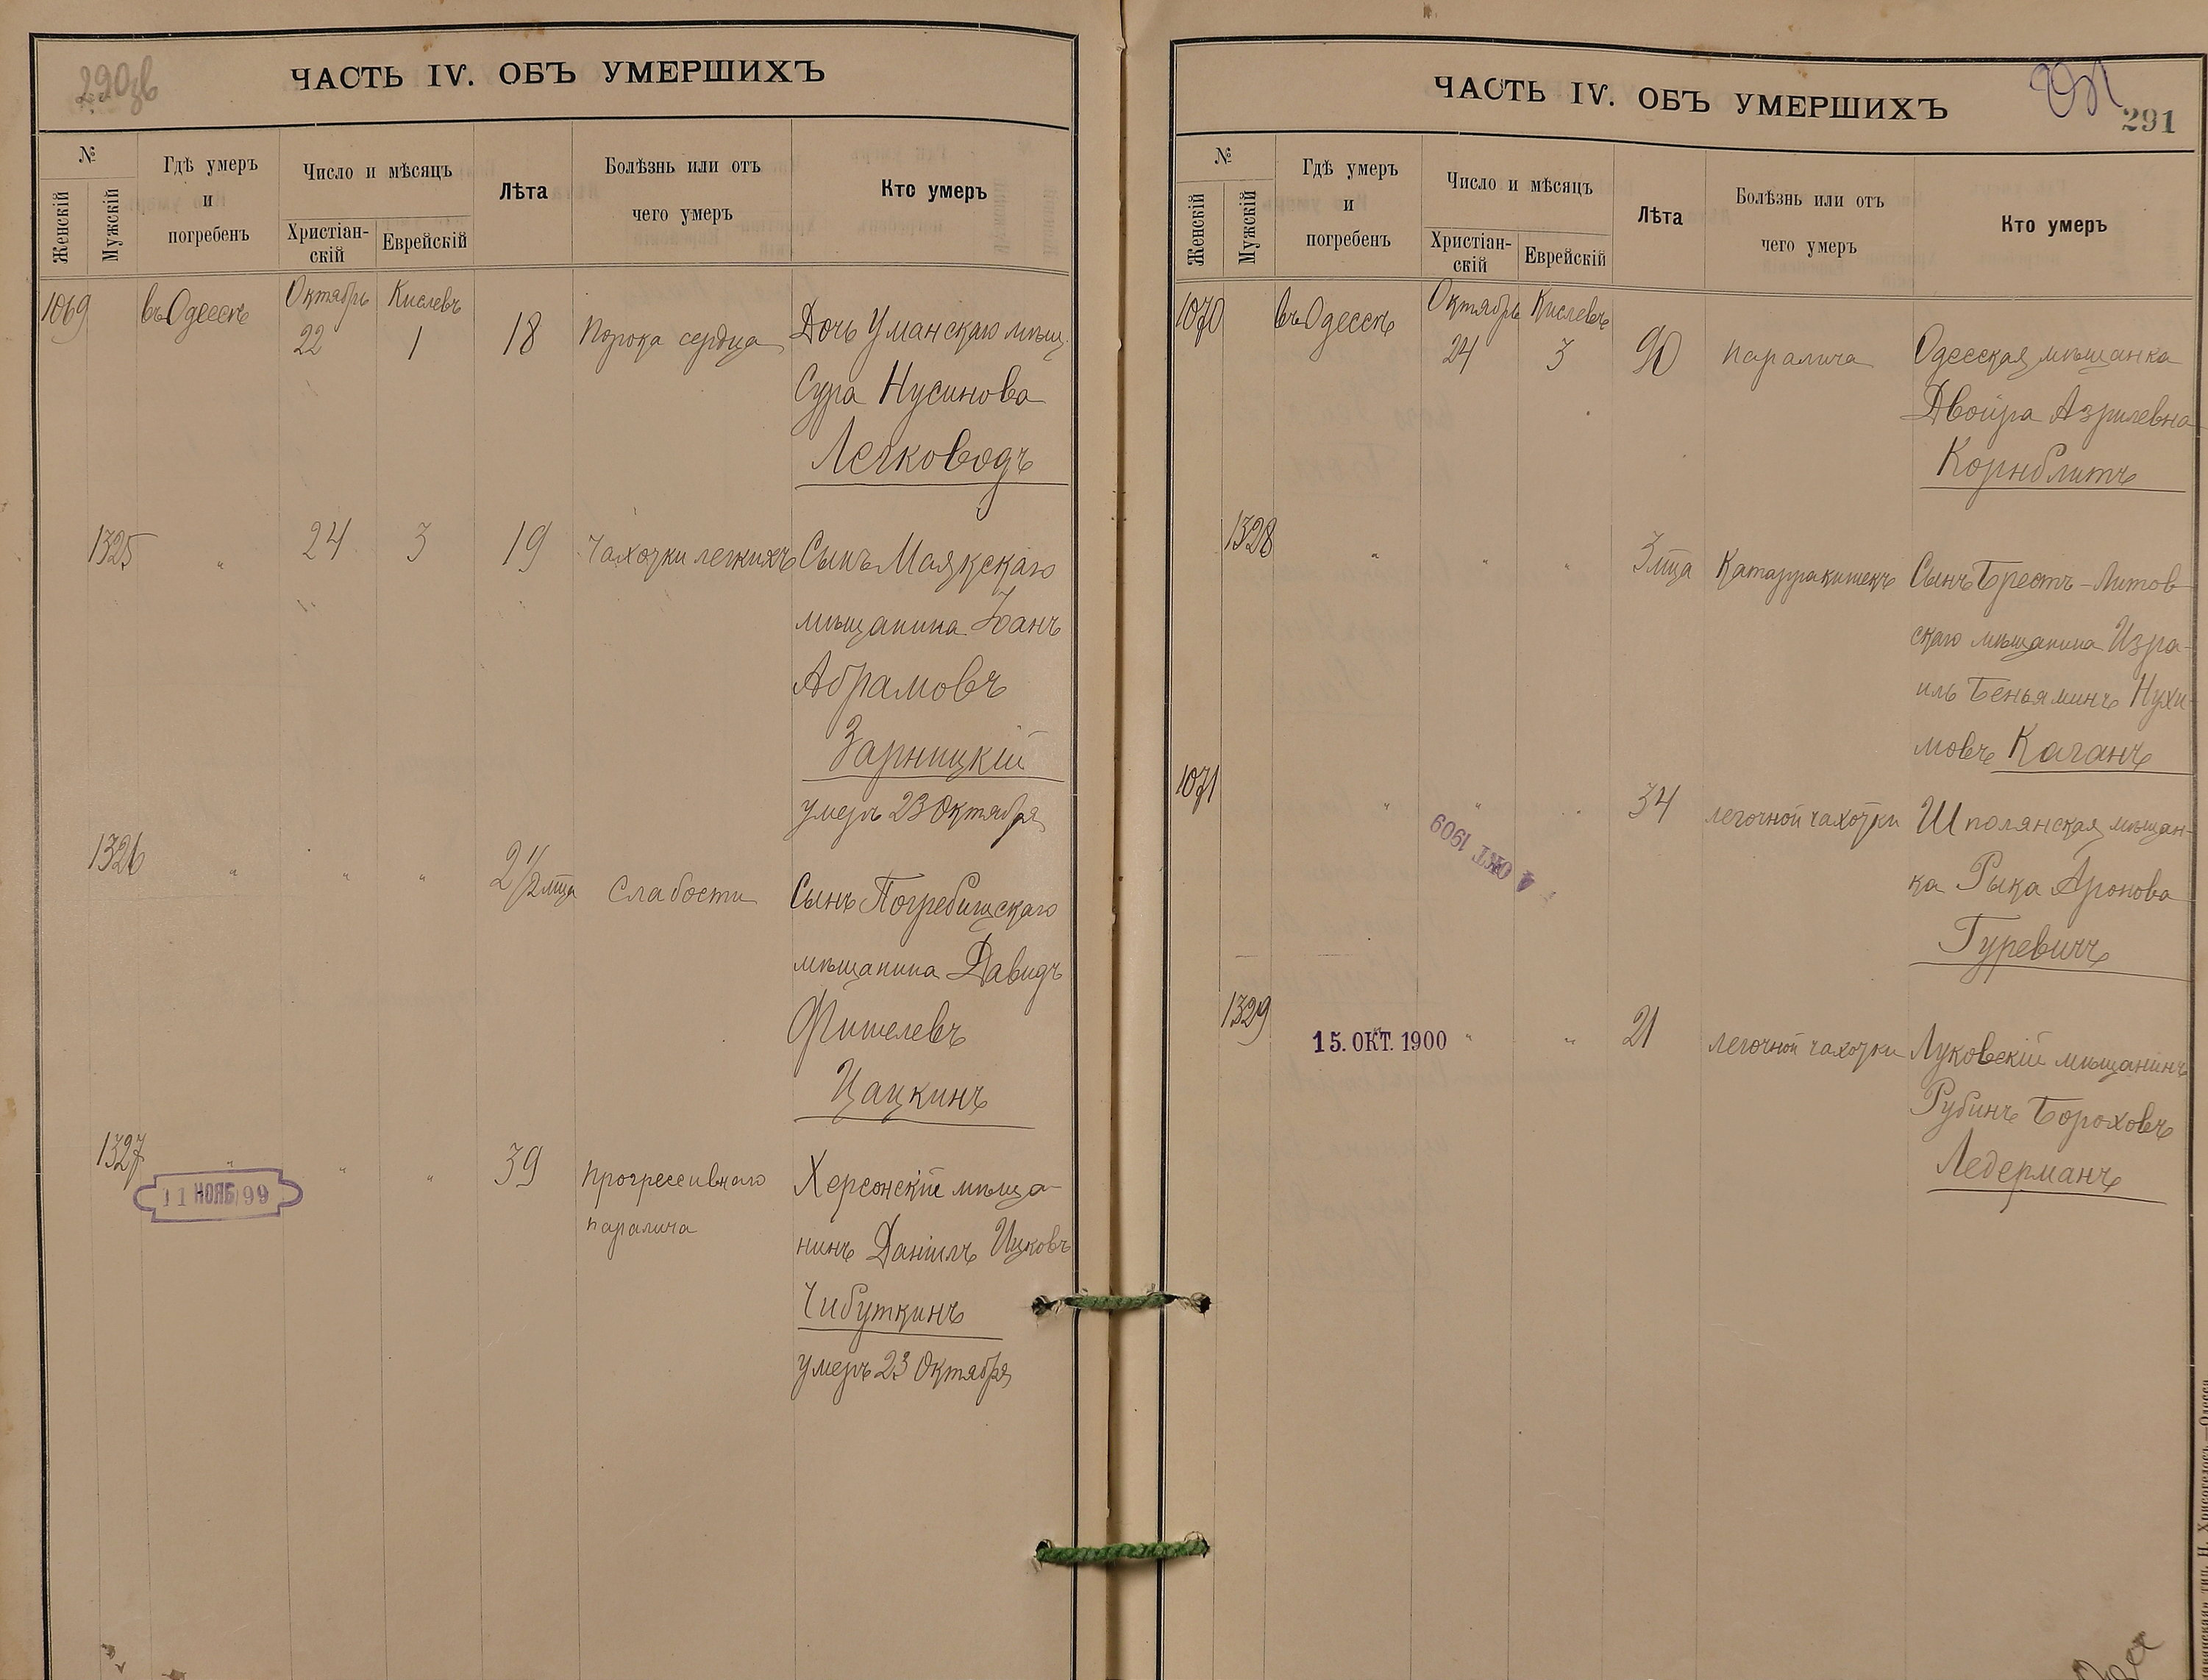 290об
ЧАСТЬ IV. ОБЪ УМЕРШИХЪ
№
Женскій
Мужскій
Гдѣ умеръ
и
погребенъ
Число и мѣсяцъ
Христіан-
скій
Еврейскій
Лѣта
Болѣзнь или отъ
чего умеръ
Кто умеръ
1069 въ Одессѣ Октябрь Кислевъ
22 1 18 Порока сердца Дочь Уманскаго мѣщ.
Сура Нусинова
Легководъ
1325 " 24 3 19 Чахотки легкихъ Сынъ Маякскаго
мѣщанина
Абрамовъ
Зарницкій
умеръ 23 Октября
1326 " " " 2 1/2 мѣца Слабости Сынъ Погребищскаго
мѣщанина Давидъ
Фишелевъ
Цацкинъ
1327 " " " 39 Прогрессивнаго Херсонскій мѣща-
паралича нинъ Даніилъ Ицковъ
Чибуткинъ
умеръ 23 Октября
11 НОЯБ 99
ЧАСТЬ IV. ОБЪ УМЕРШИХЪ
291
№
Женскій
Мужскій
Гдѣ умеръ
и
погребенъ
Число и мѣсяцъ
Христіан-
скій
Еврейскій
Лѣта
Болѣзнь или отъ
чего умеръ
Кто умеръ
1070 въ Одессѣ Октябрь Кислевъ
24 3 90 паралича Одесская мѣщанка
Двойра Азрилевна
Корнблитъ
1328 " " " 3 мѣца Катарра кишекъ Сынъ Брестъ-Литов
скаго мѣщанина Изра-
иль Беньяминъ Нухи-
мовъ Каганъ
1071 " " " 34 легочной чахотки Шполянская мѣщан-
ка Рыка Аронова
Гуревичъ
4 ОКТ 1909
1329 " " " 21 легочной чахотки Луковскій мѣщанинъ
Рубинъ Бороховъ
Ледерманъ
15. ОКТ. 1900